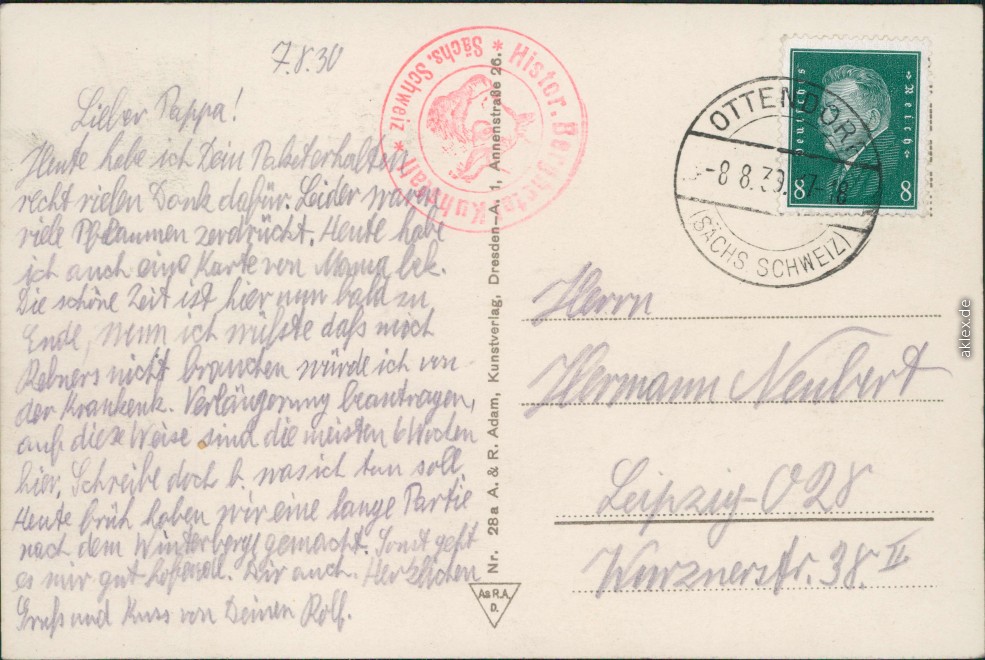 7.8.30
Lieber Pappa!
Heute habe ich Dein Paket erhalten
recht vielen Dank dafür. Leider waren
viele Pflaumen zerdrückt. Heute habe
ich auch eine Karte von Mama bek.
Die schöne Zeit ist hier nun bald zu
Ende, wenn ich wüßte daß mich
nicht brauchen würde ich von
der Krankenk. Verlängerung beantragen,
auf diese Weise sind die meisten 6 Wochen
hier. Schreibe doch b. was ich tun soll.
Heute früh haben wir eine lange Partie
nach dem Winterberge gemacht. Sonst geht
es mir gut hoffendl. Dir auch. Herzlichen
Gruß und Kuss von Deinen Rolf.
* Histor. Berggaststätte Kuhstall *
Sächs. Schweiz
Nr. 28a A. & R. Adam, Kunstverlag, Dresden-A. 1, Annenstraße 26.
A&R.A.
D.
Deutsches Reich
8 8
OTTENDORF
-8.8.30. 17-18
(SÄCHS SCHWEIZ)
Herrn
Hermann Neubert
Leipzig-O28
Wurznerstr. 38. II
aklex.de